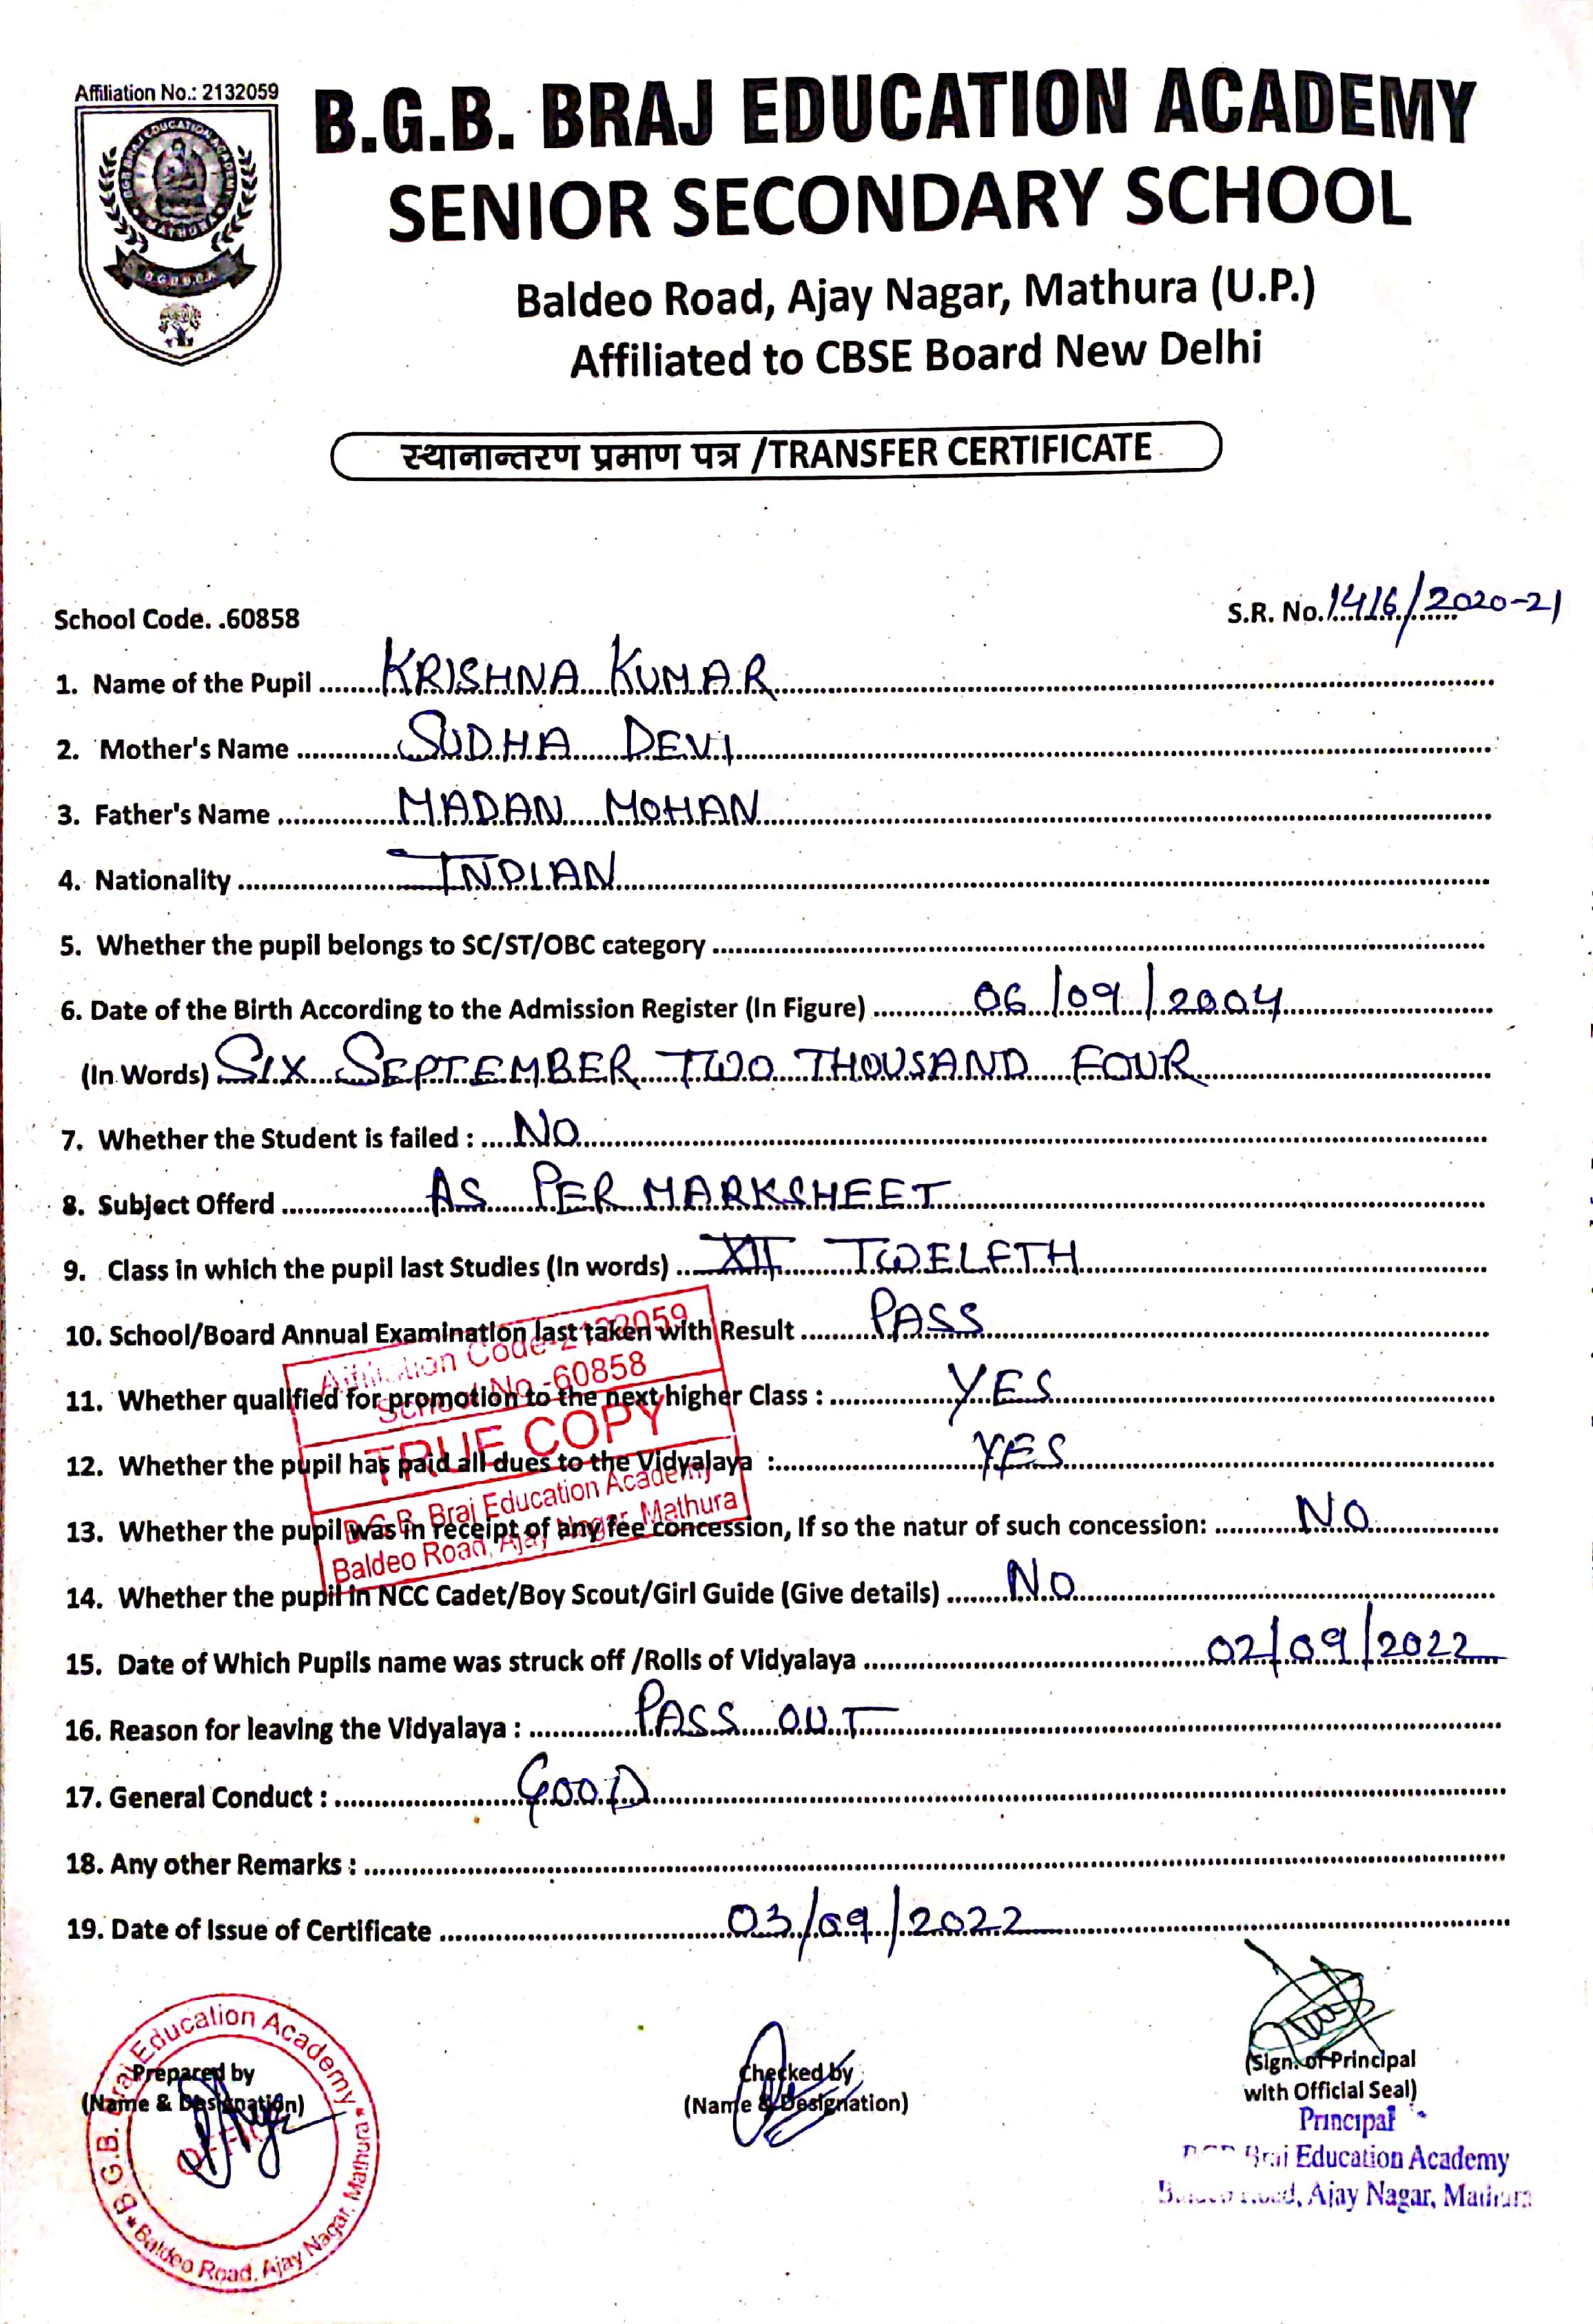 Affiliation No.: 2132059
B.G.B. BRAJ EDUCATION ACADEMY
SENIOR SECONDARY SCHOOL
Baldeo Road, Ajay Nagar, Mathura (U.P.)
Affiliated to CBSE Board New Delhi
स्थानान्तरण प्रमाण पत्र /TRANSFER CERTIFICATE
School Code. .60858
S.R. No. 1416/2020-21
1. Name of the Pupil ........ KRISHNA KUMAR
2. Mother's Name ............ SUDHA DEVI
3. Father's Name .............. MADAN MOHAN
4. Nationality ................ INDIAN
5. Whether the pupil belongs to SC/ST/OBC category ........
6. Date of the Birth According to the Admission Register (In Figure) ............ 06/09/2004
(In Words) SIX SEPTEMBER TWO THOUSAND FOUR
7. Whether the Student is failed : .... NO
8. Subject Offerd .................. AS PER MARKSHEET
9. Class in which the pupil last Studies (In words) .. XII TWELFTH
10. School/Board Annual Examination last taken with Result ......... PASS
11. Whether qualified for promotion to the next higher Class : ............... YES
12. Whether the pupil has paid all dues to the Vidyalaya :............... YES
13. Whether the pupil was in receipt of any fee concession, If so the natur of such concession: .......... NO
14. Whether the pupil in NCC Cadet/Boy Scout/Girl Guide (Give details) ........ NO
15. Date of Which Pupils name was struck off /Rolls of Vidyalaya ............ 02/09/2022
16. Reason for leaving the Vidyalaya : ............. PASS OUT
17. General Conduct : ...................... GOOD
18. Any other Remarks : ........
19. Date of Issue of Certificate ............... 03/09/2022
Affiliation Code-2132059
School No.-60858
TRUE COPY
B.G.B. Braj Education Academy
Baldeo Road, Ajay Nagar, Mathura
Prepared by
(Name & Designation)
B.G.B. Braj Education Academy ★ Baldeo Road, Ajay Nagar, Mathura ★
Checked by
(Name & Designation)
(Sign. of Principal
with Official Seal)
Principal
Braj Education Academy
Ajay Nagar, Mathura